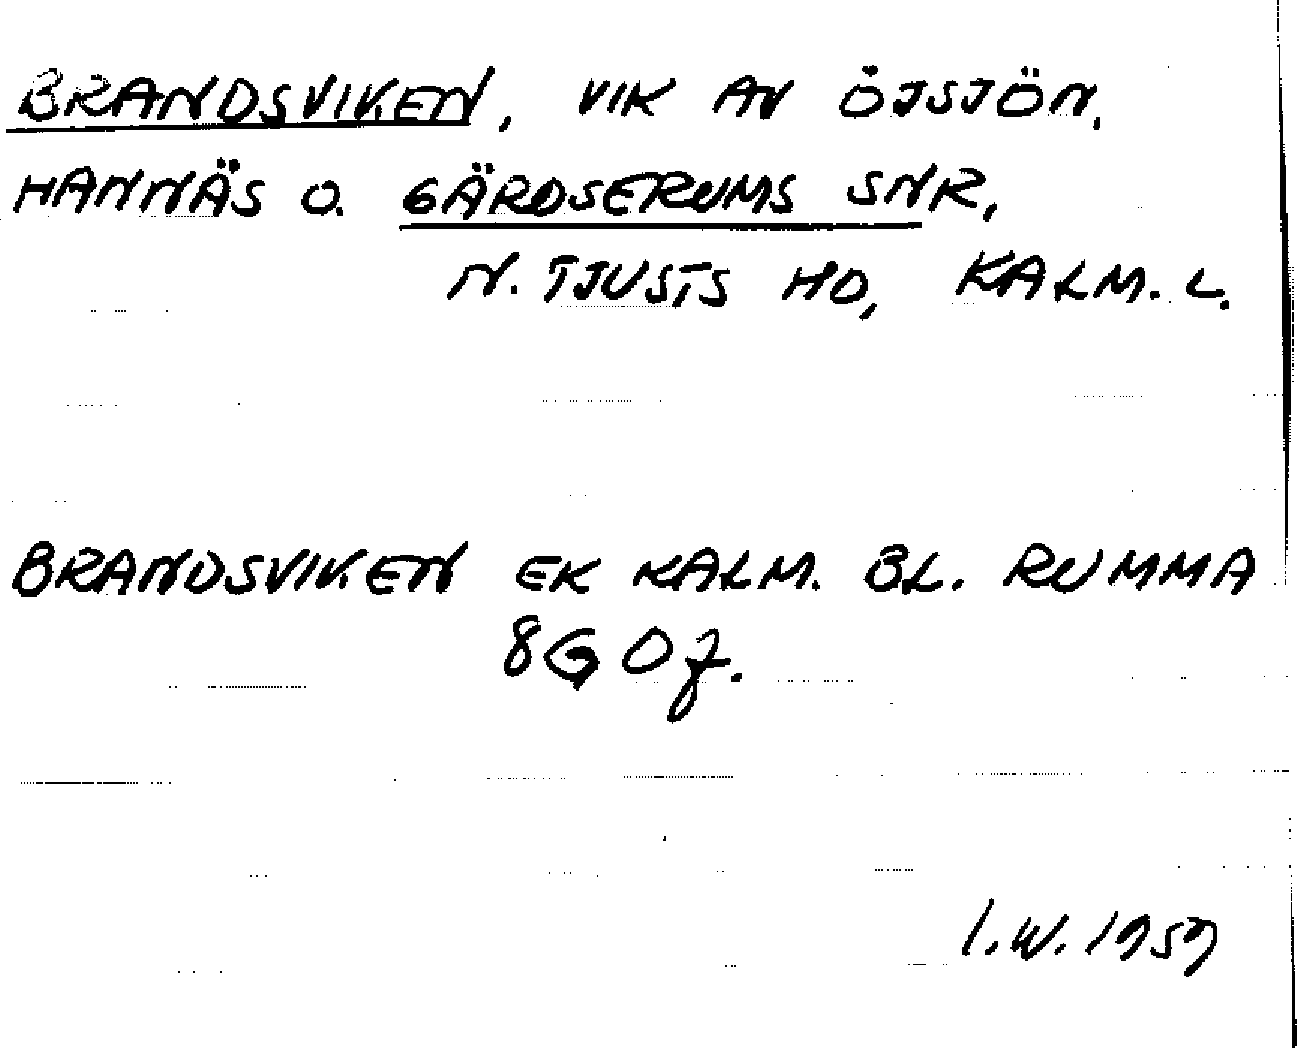 BRANDSVIKEN, VIK AV ÖJSJÖN,
HANNÄS O. GÄRDSERUMS SNR,
N. TJUSTS HD, KALM. L.
BRANDSVIKEN EK KALM. BL. RUMMA
8G 0f.
I.W. 1959